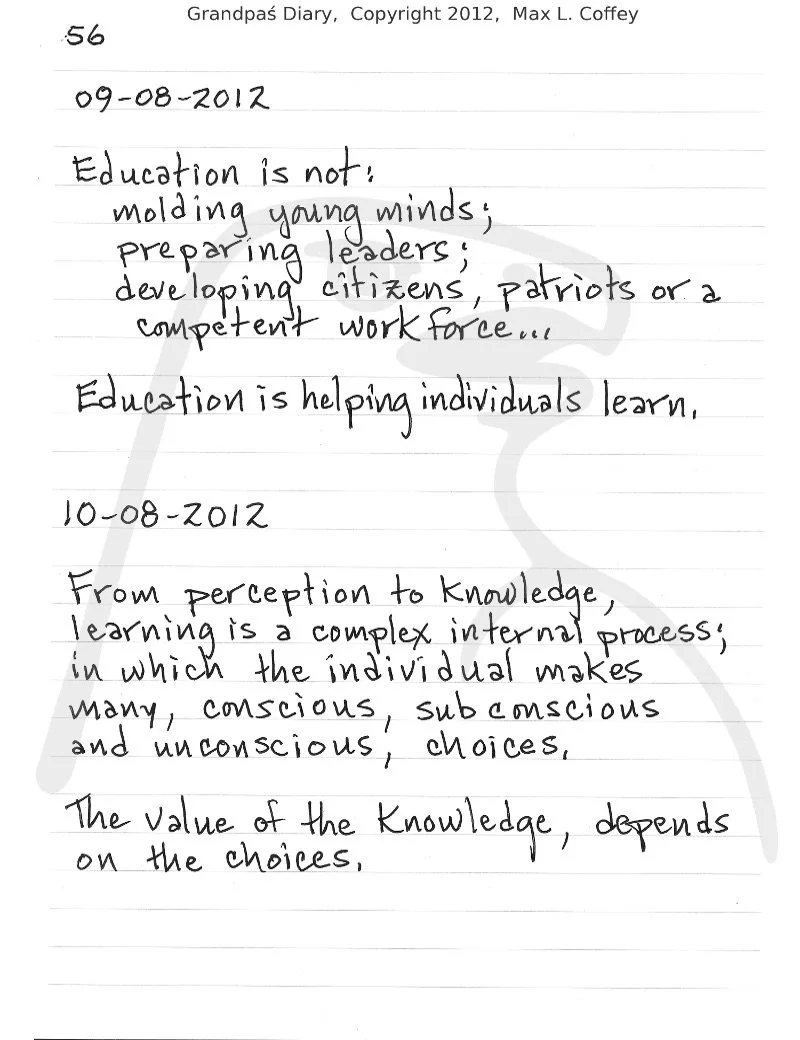 Grandpaś Diary, Copyright 2012, Max L. Coffey
56
09-08-2012
Education is not:
molding young minds;
preparing leaders;
developing citizens, patriots or a
competent workforce...
Education is helping individuals learn.
10-08-2012
From perception to Knowledge,
learning is a complex internal process;
in which the individual makes
many, conscious, subconscious
and unconscious, choices.
The value of the Knowledge, depends
on the choices.